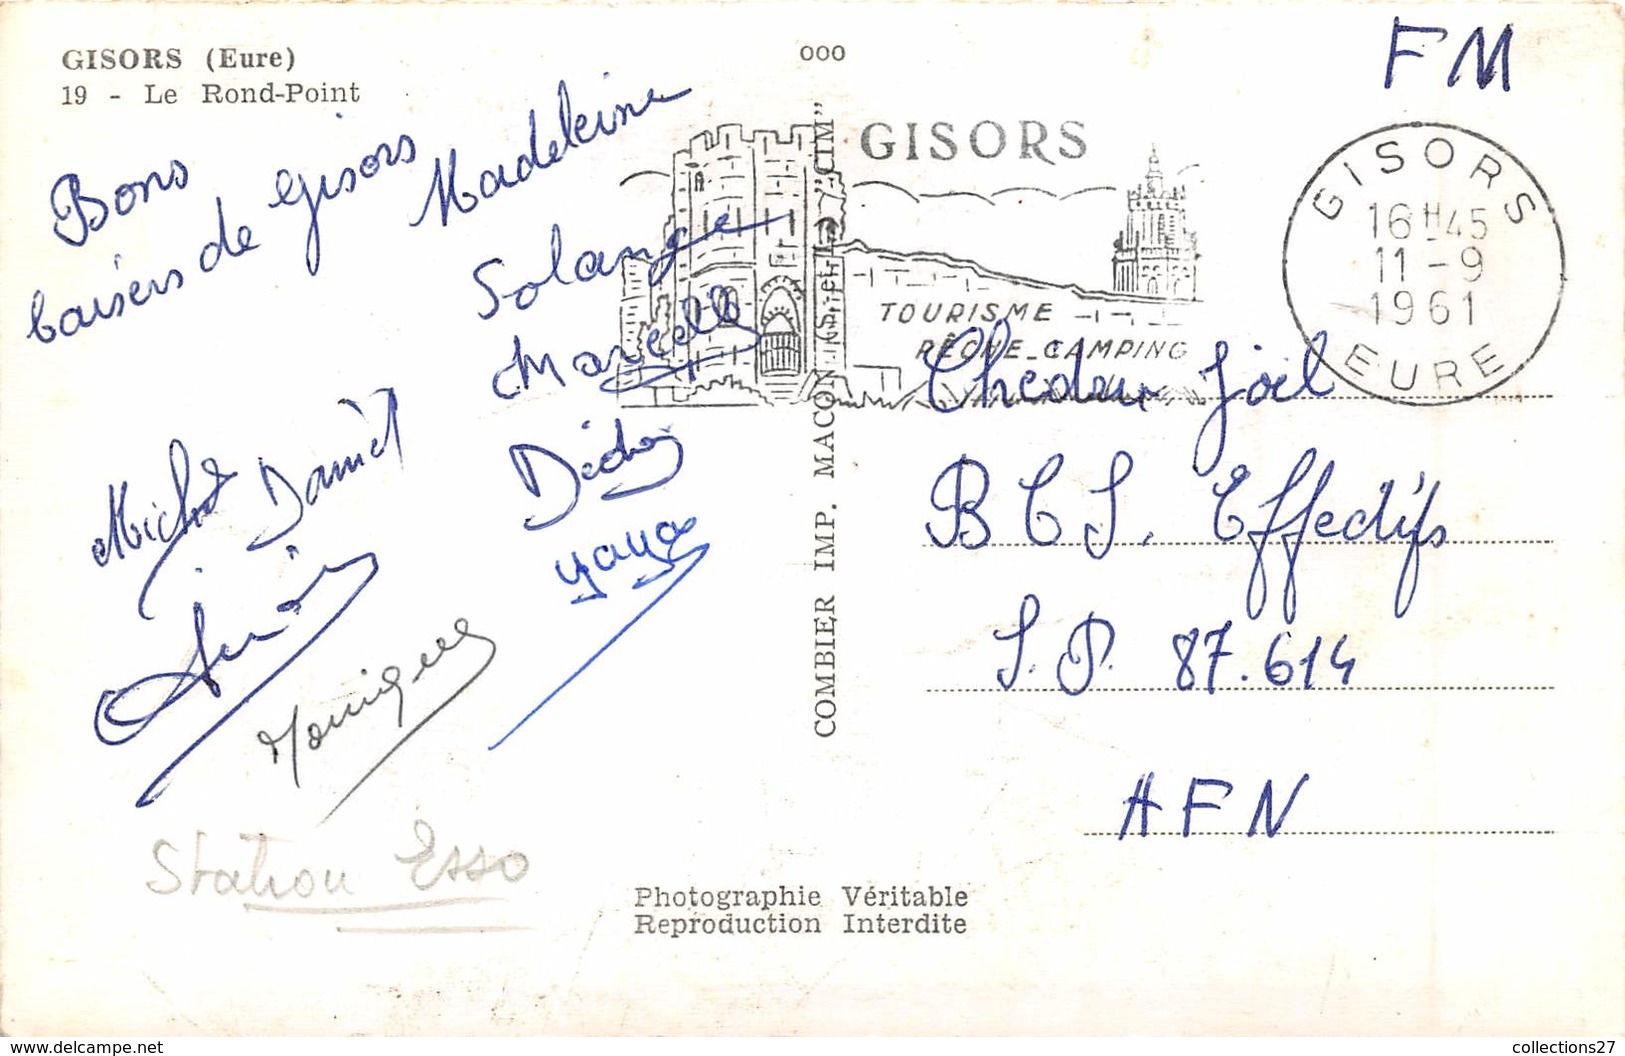 GISORS (Eure)
19 - Le Rond-Point
000
FM
Bons
baisers de Gisors
Madeleine
Solange
Marcelle
Michel
Daniel
Dédé
yaya
Monique
Station Esso
GISORS
TOURISME
PÊCHE-CAMPING
GISORS
16H45
11-9
1961
EURE
COMBIER IMP. MACON (S.-et-L.) "CIM"
Joël
B C S. Effectifs
S.P. 87.614
AFN
Photographie Véritable
Reproduction Interdite
collections27
www.delcampe.net